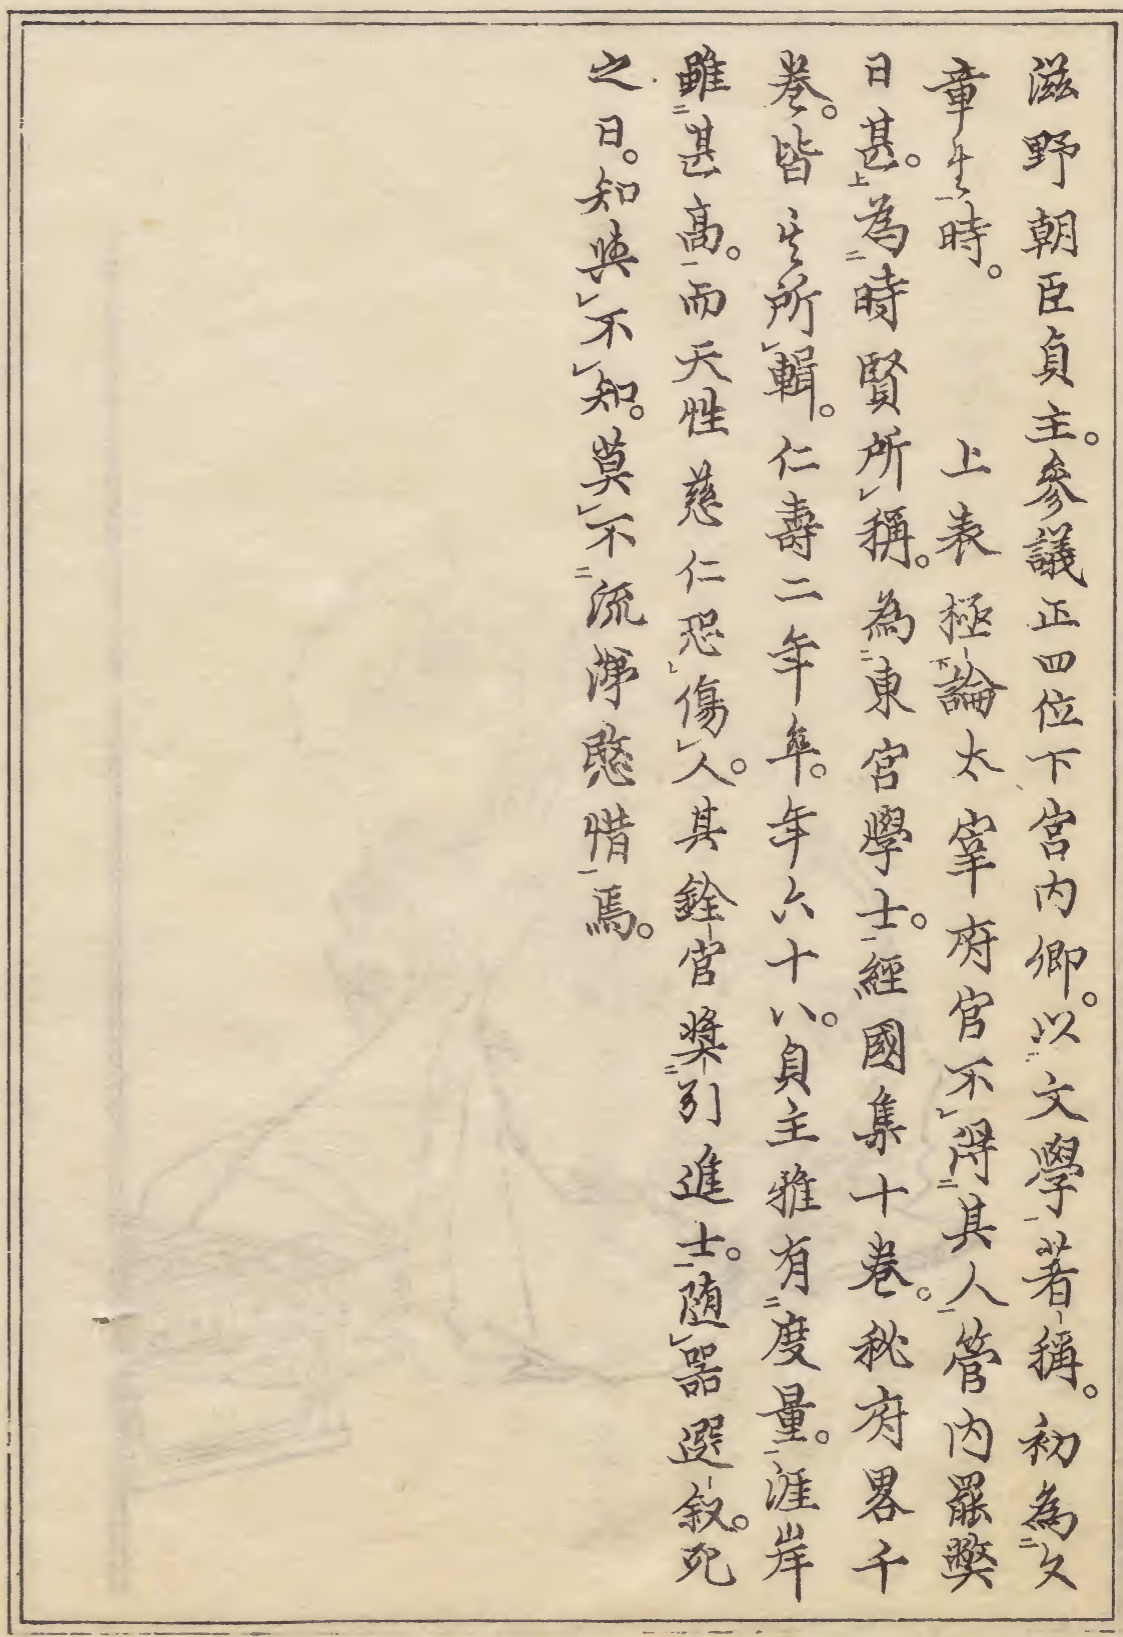 滋野朝臣貞主。參議正四位下宮內卿。以文學著稱。初為文
章生時。上表極論太宰府官不得其人管內罷弊
日甚。為時賢所稱。為東宮學士。經國集十卷。秘府畧千
卷。皆其所輯。仁壽二年卒。年六十八。貞主雅有度量。涯岸
雖甚高。而天性慈仁恐傷人。其銓官奬引進士。随器選叙。死
之日。知與不知。莫不流涕愍惜焉。